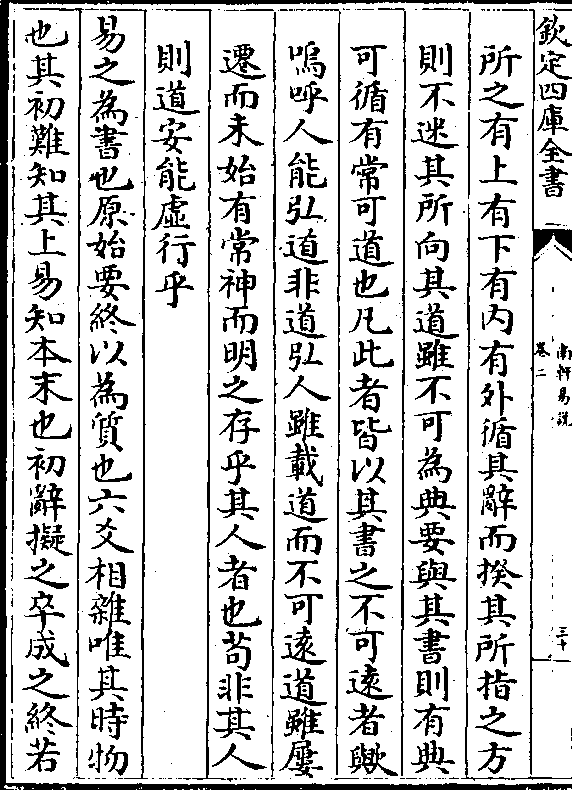 欽定四庫全書
南軒易說
卷二
三十一
所之有上有下有內有外循其辭而揆其所指之方
則不迷其所向其道雖不可為典要與其書則有典
可循有常可道也凡此者皆以其書之不可遠者歟
嗚呼人能弘道非道弘人雖載道而不可遠道雖屢
遷而未始有常神而明之存乎其人者也苟非其人
則道安能虛行乎
易之為書也原始要終以為質也六爻相雜唯其時物
也其初難知其上易知本末也初辭擬之卒成之終若